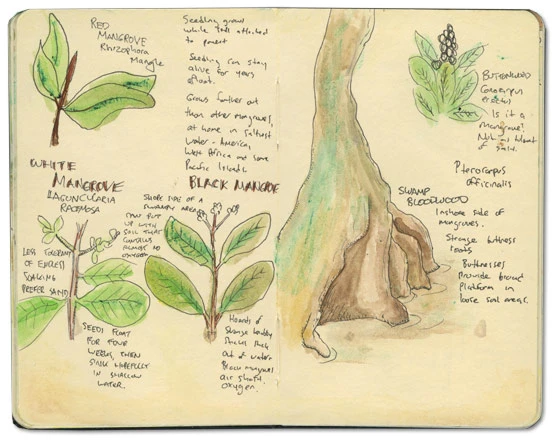 RED
MANGROVE
Rhizophora
Mangle
Seedling grows
while still attached
to parent
Seedling can stay
alive for years
afloat.
Grows farther out
than other mangroves,
at home in saltiest
water - America,
West Africa and some
Pacific Islands.
WHITE
MANGROVE
LAGUNCULARIA
RACEMOSA
LESS TOLERANT
OF EXCESS
SOAKING
PREFER SAND
SEEDS FLOAT
FOR FOUR
WEEKS, THEN
SINK HOPEFULLY
IN SHALLOW
WATER.
BLACK MANGROVE
SHORE SIDE OF A
SWAMPY AREA
CAN PUT
UP WITH
SOIL THAT
CONTAINS
ALMOST NO
OXYGEN
Hoards of
strange knobby
sticks stick
out of water.
Black mangroves
air shafts.
oxygen.
BUTTONWOOD
Conocarpus
erectus
Is it a
mangrove?
of salt.
Pterocarpus
officinalis
SWAMP
BLOODWOOD
Inshore side of
mangroves.
Strange buttress
roots
Buttresses
provide broad
platform in
loose soil areas.